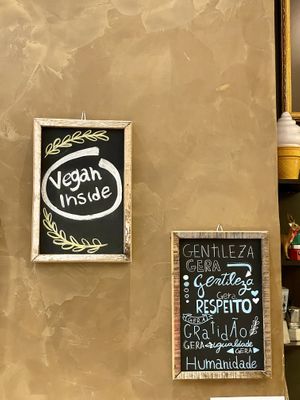 Vegan
inside
GENTILEZA
GERA
Gentileza
Gera
RESPEITO
GERA
GRATIDÃO
GERA igualdade
GERA
Humanidade